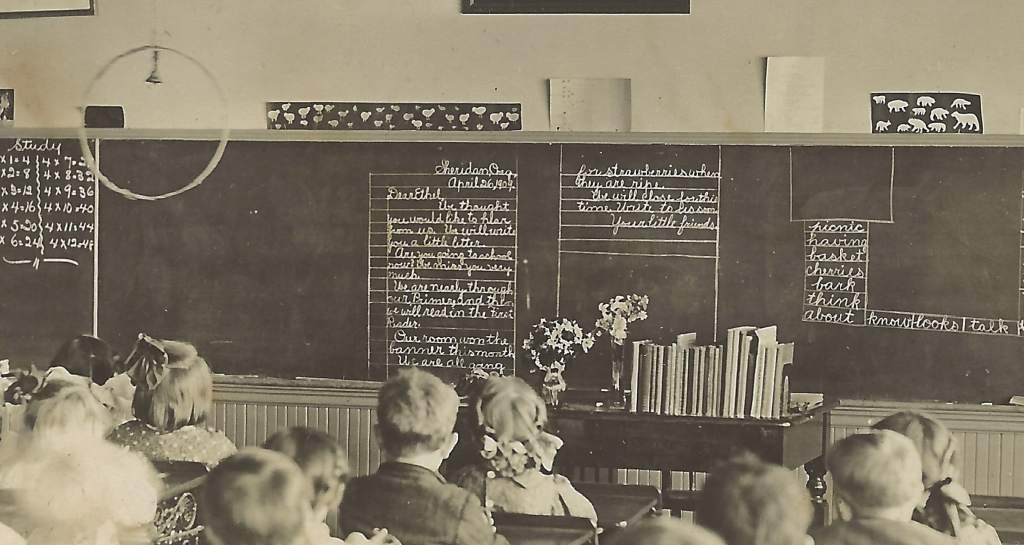 Study
x1=4 4x7=2
x2=8 4x8=32
x3=12 4x9=36
x4=16 4x10=40
x5=20 4x11=44
x6=24 4x12=48
Sheridan Oreg.
April 26, 1909.
Dear Ethel
We thought
you would like to hear
from us. We will write
you a little letter.
Are you going to school
now? We miss you very
much.
We are nearly through
our Primer, and then
we will read in the First
Reader.
Our room won the
banner this month
We are all going
for strawberries when
they are ripe.
We will close for this
time
Your little friends
picnic
having
basket
cherries
bark
think
about know looks talk